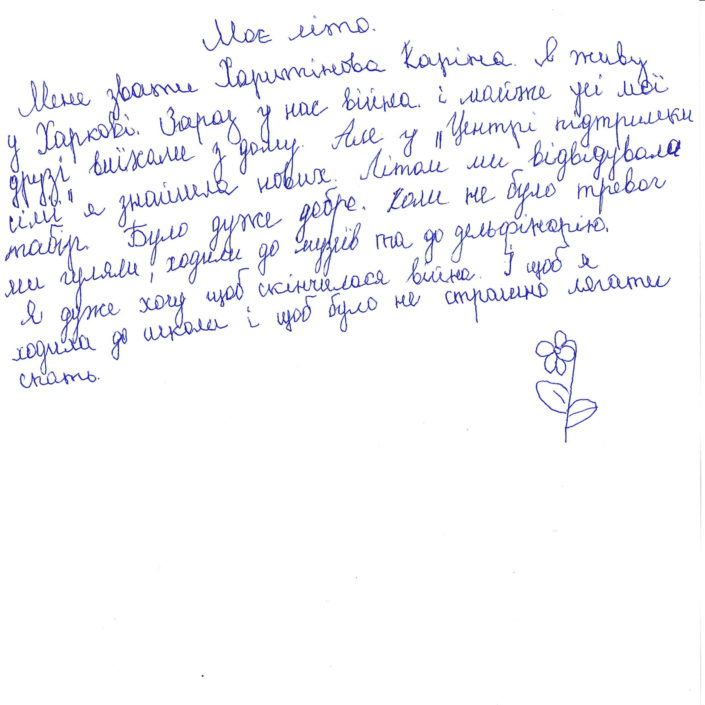 Моє літо.
Мене звати Харитінова Каріна. Я живу
у Харкові. Зараз у нас війна. і майже усі мої
друзі виїхали з дому. Але у "Центрі підтримки
сімї" я знайшла нових. Літом ми відвідувала
табір. Було дуже добре. Коли не було тревог
ми гуляли, ходили до музеїв та до дельфінарію.
Я дуже хочу щоб скінчилася війна. І щоб я
ходила до школи і щоб було не страшно лягати
спать.